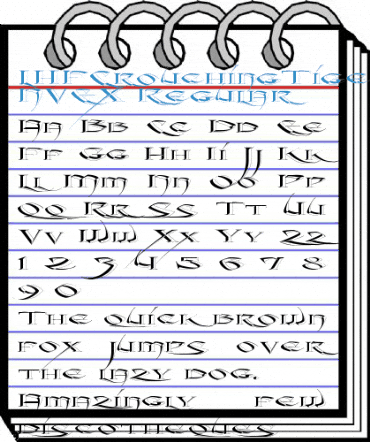 LHFCrouchingTige
RVEX Regular
Aa Bb Cc Dd Ee
Ff Gg Hh Ii Jj Kk
Ll Mm Nn Oo Pp
Qq Rr Ss Tt Uu
Vv Ww Xx Yy Zz
1 2 3 4 5 6 7 8
9 0
The quick brown
fox jumps over
the lazy dog.
Amazingly few
discotheques